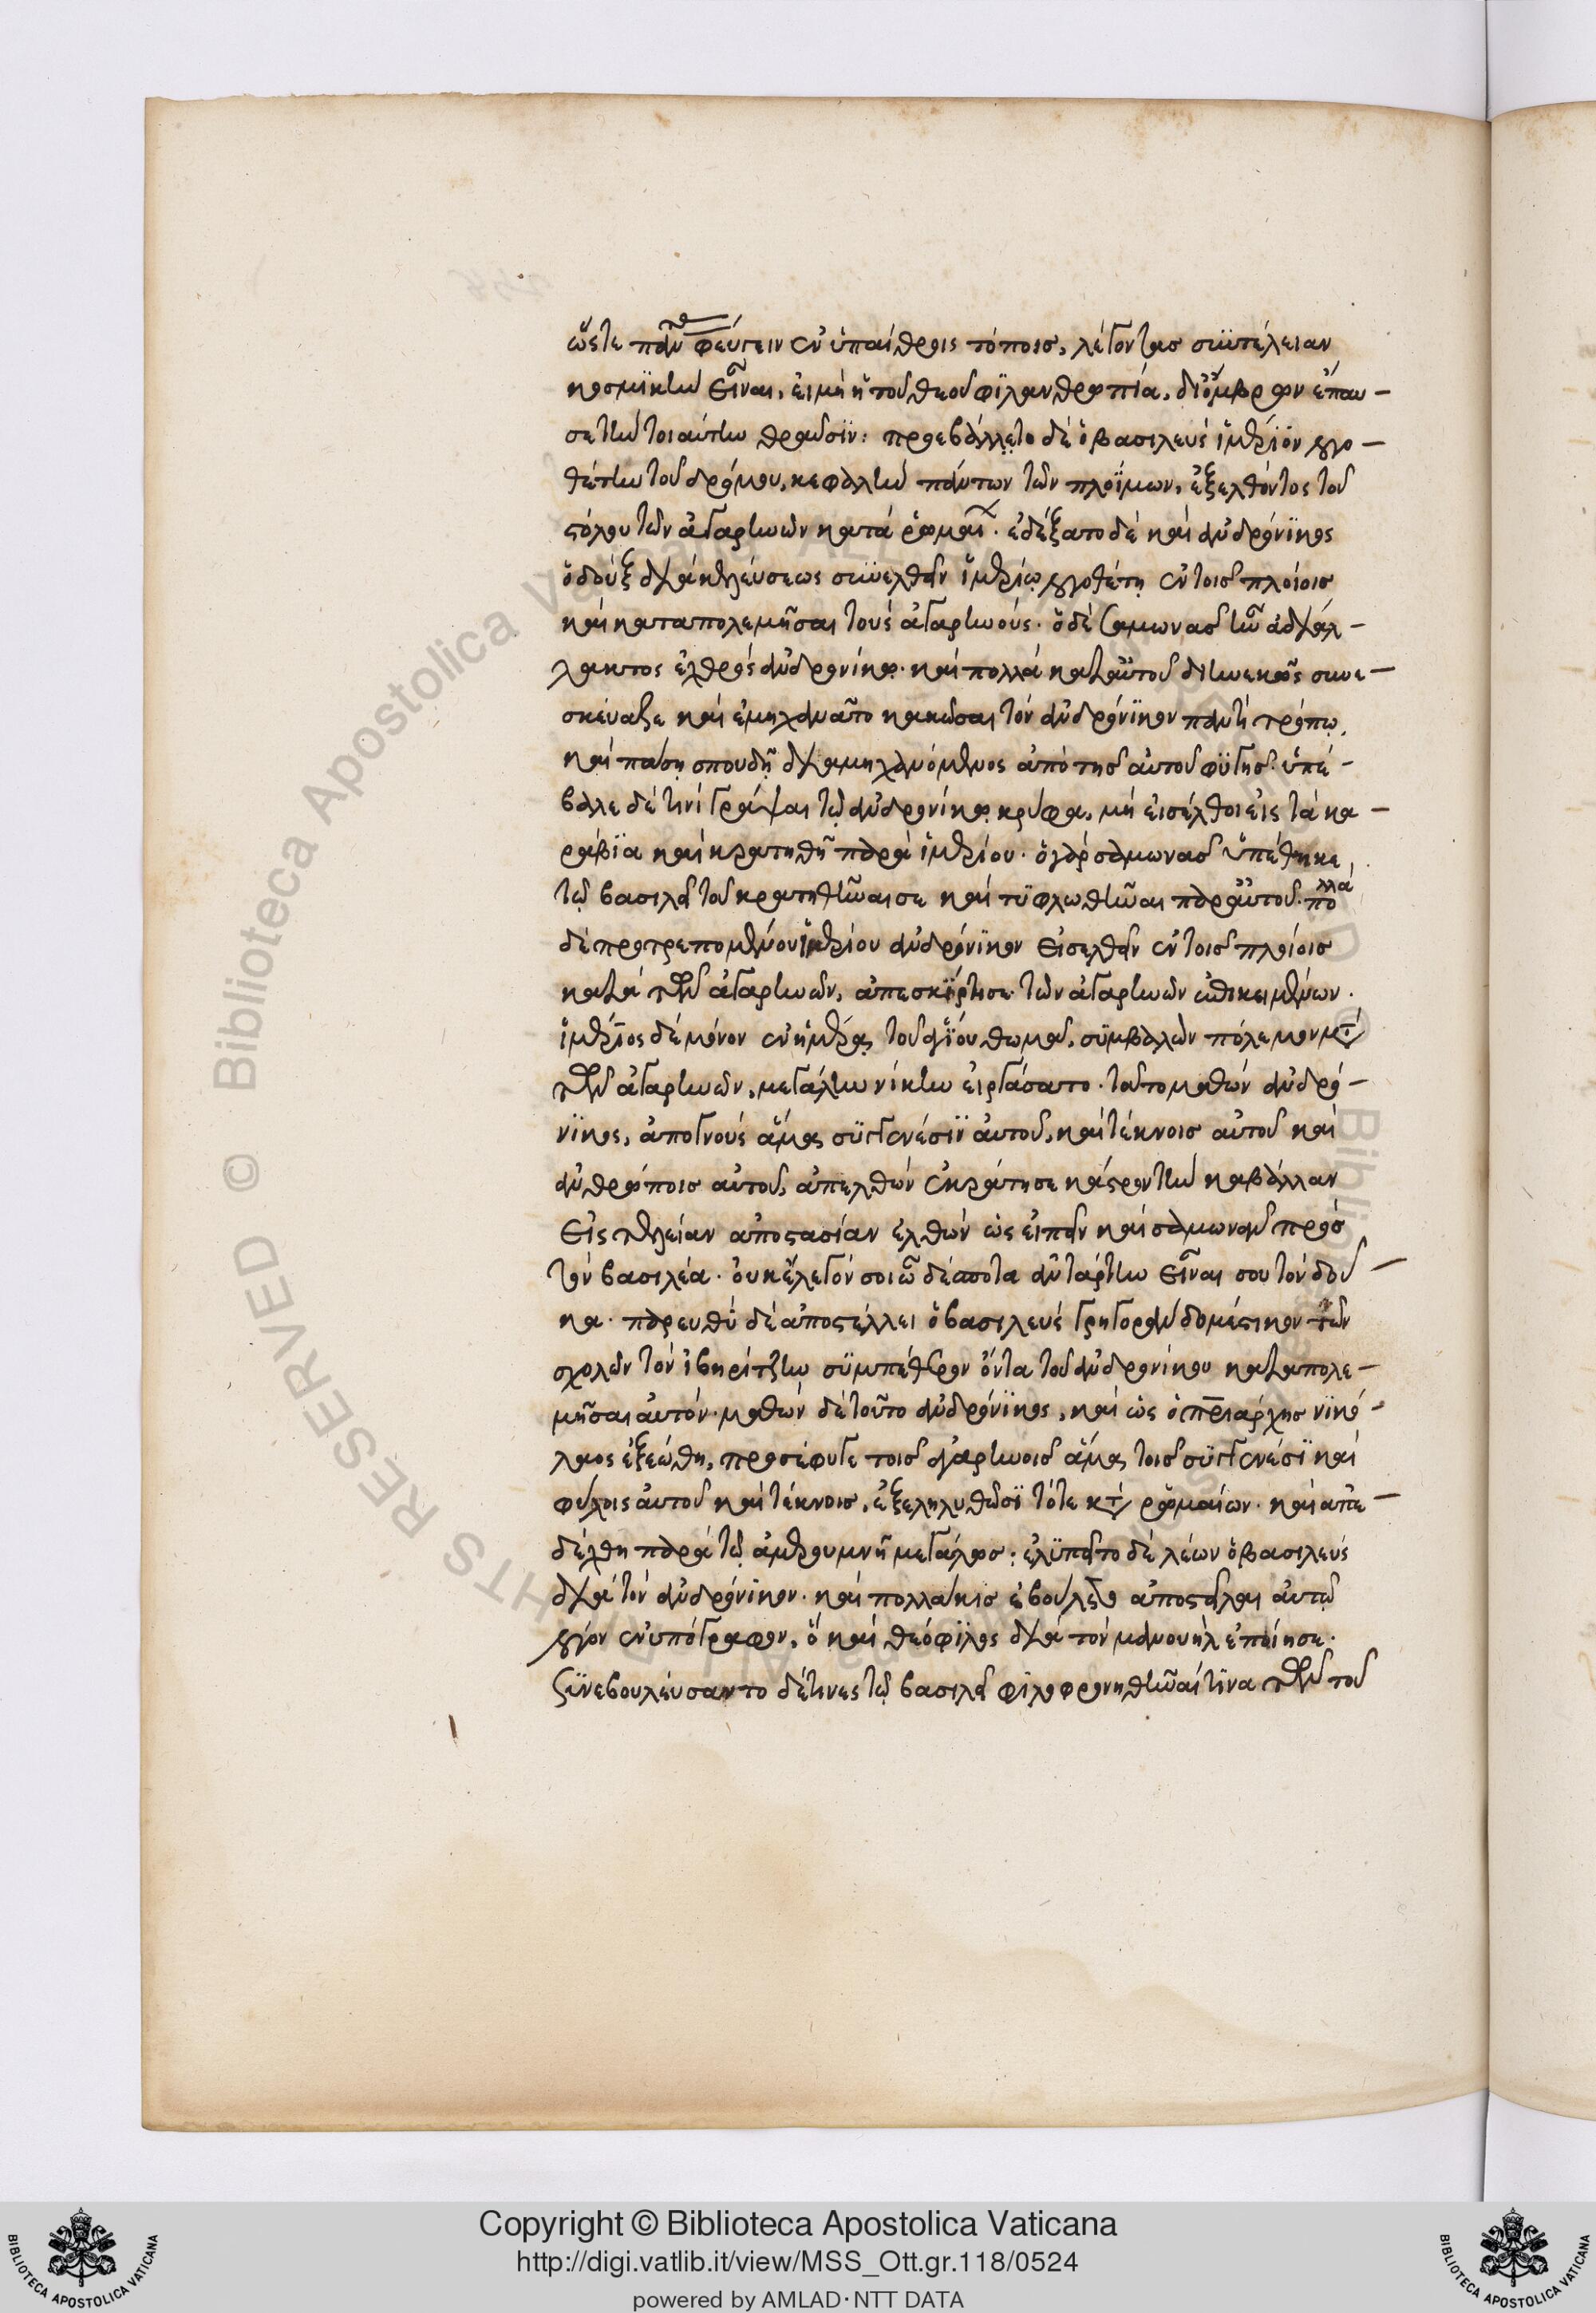 ὥστε πάντας φεύγειν ἐν ὑπαίθροις τόποις, λέγοντας συντέλειαν
κοσμϊκὴν εἶναι, εἰ μὴ ἡ τοῦ θεοῦ φϊλανθρωπία, δι' ὄμβρων ἔπαυ-
σε τὴν τοιαύτην θραῦσϊν: προεβάλλετο δὲ ὁ βασιλεὺς ἱμέρϊον λογο-
θέτην τοῦ δρόμου, κεφαλὴν πάντων τῶν πλοΐμων, ἐξελθόντος τοῦ
στόλου τῶν ἀγαρηνῶν κατὰ ῥωμαί. ἐδέξατο δὲ καὶ ἀνδρόνϊκος
ὁ δοὺξ διὰ κελεύσεως συνελθεῖν ἱμερίῳ λογοθέτῃ ἐν τοῖς πλοίοις
καὶ καταπολεμῆσαι τοὺς ἀγαρηνούς. ὁ δὲ σαμωνᾶς ἦν ἀδιάλ-
λακτος ἐχθρὸς ἀνδρονίκῳ. καὶ πολλὰ κατ' αὐτοῦ διηνεκῶς συνε-
σκεύαζε καὶ ἐμηχανᾶτο κακῶσαι τὸν ἀνδρόνϊκον παντὶ τρόπῳ,
καὶ πάσῃ σπουδῇ διαμηχανόμενος ἀπὸ τῆς αὐτοῦ φϋγῆς. ὑπέ-
βαλε δὲ τινὶ γράψαι τῷ ἀνδρονίκῳ κρύφα, μὴ εἰσέλθοι εἰς τὰ κα-
ράβϊα καὶ κρατηθῇ παρὰ ἱμερίου. ὁ γὰρ σαμωνᾶς ὑπέθηκε
τῷ βασιλεῖ τοῦ κρατηθῆναι σε καὶ τϋφλωθῆναι παρ' αὐτοῦ. πολλὰ
δὲ προτρεπομένου ἱμερίου ἀνδρόνϊκον εἰσελθεῖν ἐν τοῖς πλοίοις
κατὰ τῶν ἀγαρηνῶν, ἀπεσκίρτησε τῶν ἀγαρηνῶν ἐπικειμένων.
ἱμέρϊος δὲ μόνον ἐν ἡμέρᾳ τοῦ ἁγίου θωμᾶ, συμβαλὼν πόλεμον μετὰ
τῶν ἀγαρηνῶν, μεγάλην νίκην εἰργάσατο. τοῦτο μαθὼν ἀνδρό-
νϊκος, ἀπογνοὺς ἅμα συγγενέσϊν αὐτοῦ, καὶ τέκνοις αὐτοῦ καὶ
ἀνθρώποις αὐτοῦ, ἀπελθὼν ἐκράτησε κάστρον τὴν καβάλλαν
εἰς τελείαν ἀποστασίαν ἐλθὼν ὡς εἰπεῖν καὶ σαμωνᾶν πρὸς
τὸν βασιλέα. οὐκ ἔλεγόν σοι ὦ δέσποτα ἀντάρτην εἶναι σου τὸν δοῦ-
κα. παρευθὺ δὲ ἀποστέλλει ὁ βασιλεὺς γρηγορᾶν δομέστικον τῶν
σχολῶν τὸν ἰβηρίτζην σϋμπένθερον ὄντα τοῦ ἀνδρονίκου καταπολε-
μῆσαι αὐτόν. μαθὼν δὲ τοῦτο ἀνδρόνϊκος, καὶ ὡς ὁ πριάρχης νϊκό-
λαος ἐξεώθη, προσέφυγε τοῖς ἀγαρηνοῖς ἅμα τοῖς συγγενέσϊ καὶ
φίλοις αὐτοῦ καὶ τέκνοις, ἐξεληλυθόσϊ τότε κατὰ ῥωμαίων. καὶ ἀπε-
δέχθη παρὰ τῷ ἀμερουμνῇ μεγάλως: ἐλυπεῖτο δὲ λέων ὁ βασιλεὺς
διὰ τὸν ἀνδρόνϊκον. καὶ πολλάκις ἐβούλετο ἀποστεῖλαι αὐτῷ
λόγον ἐνυπόγραφον, ὃ καὶ θεόφϊλος διὰ τὸν μανουὴλ ἐποίησε.
ξϋνεβουλεύσαντο δέ τινες τῷ βασιλεῖ φϊλοφρονηθῆναί τϊνα τῶν τοῦ
Copyright © Biblioteca Apostolica Vaticana
http://digi.vatlib.it/view/MSS_Ott.gr.118/0524
powered by AMLAD·NTT DATA